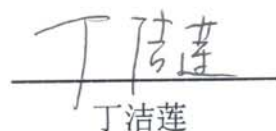 丁洁莲
丁洁莲